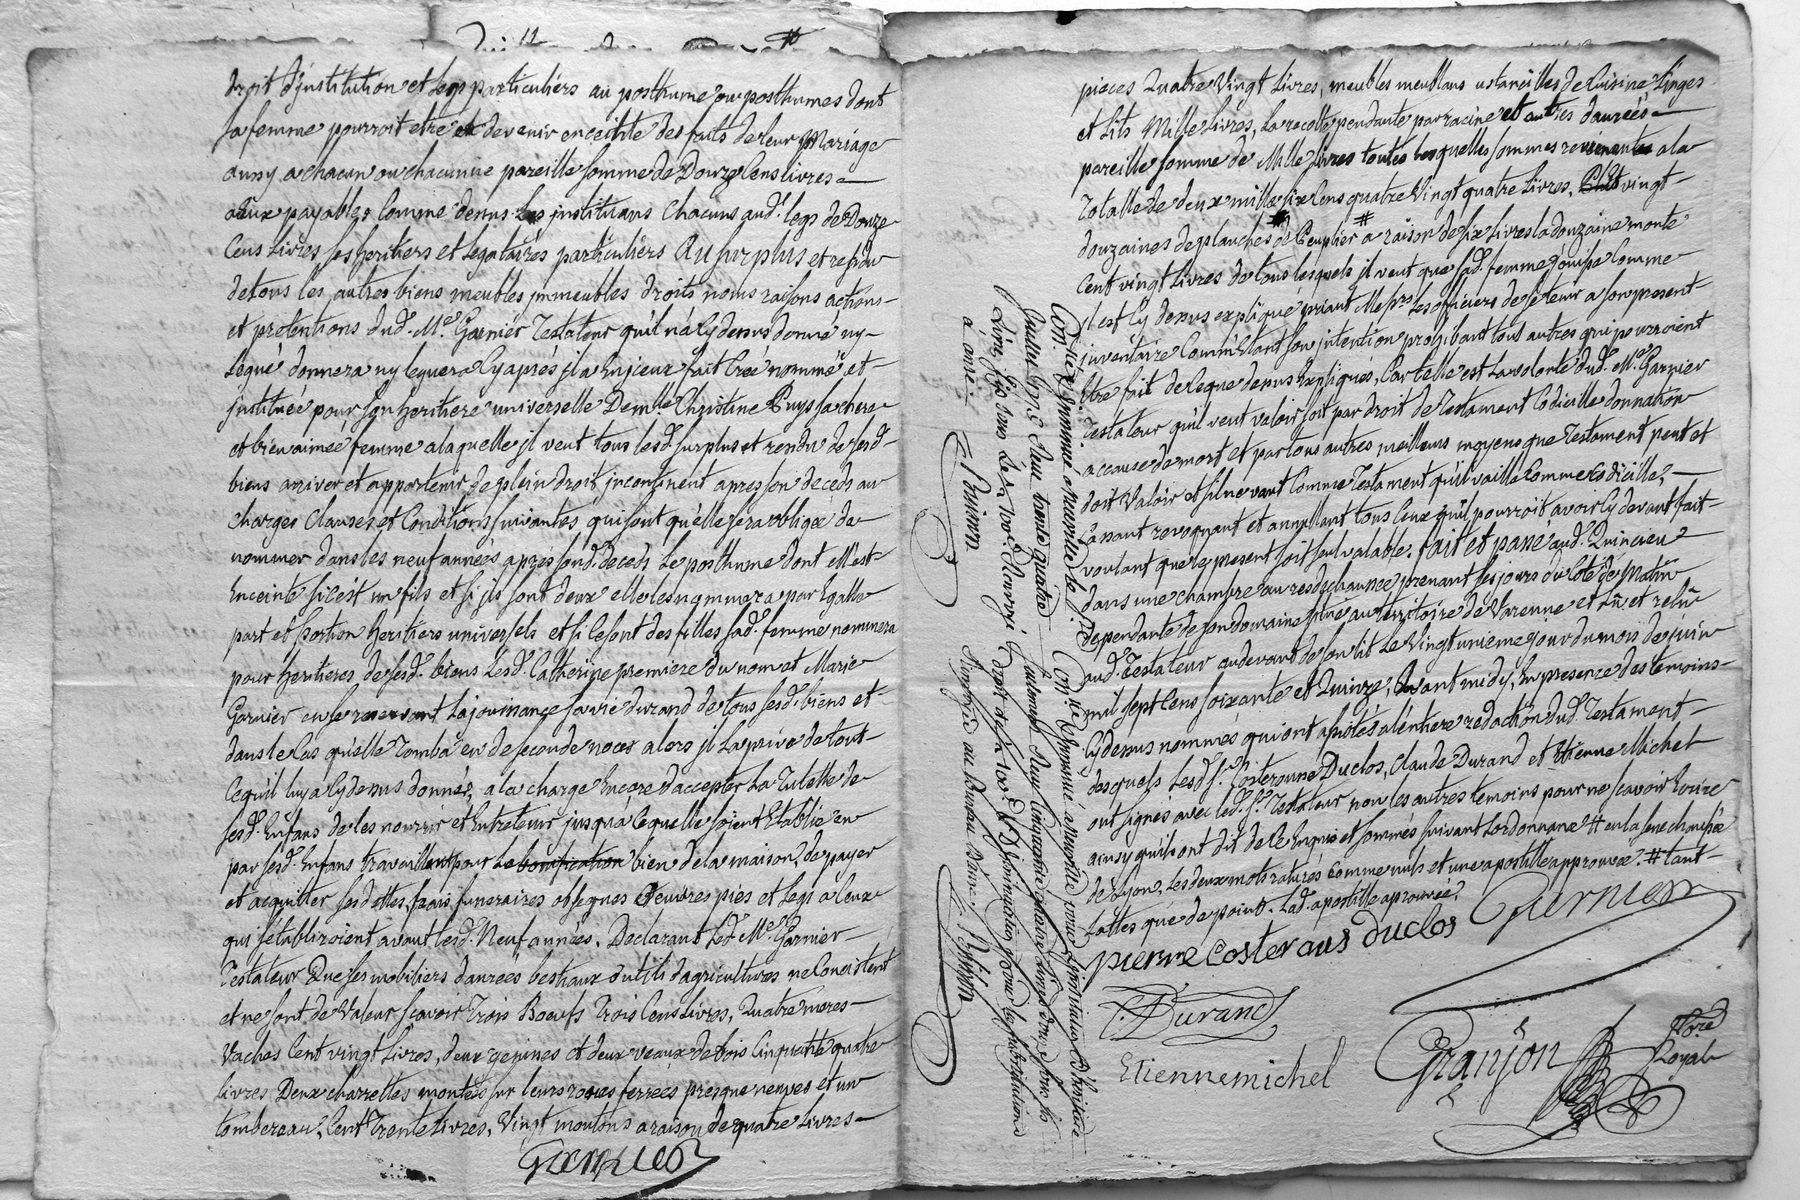 droit d'institution et legs particuliers au posthume ou posthumes dont
sa femme pourroit etre et devenir enceinte des faits de leur Mariage
aussy a chacun ou chacunne pareille somme de Douze Cens livres
a eux payables Comme dessus Les instituans Chacuns aud. legs de Douze
Cens livres ses heritiers et legataires particuliers Au surplus et residu
de tous les autres biens meubles immeubles droits noms raisons actions
et pretentions dud. Me. Garnier Testateur qu'il n'a Cy dessus donné ny
Legué donnera ny leguera Cy aprés il a fait Créé nommé et
instituée pour son heritiere universelle Demlle Christine Puys sa chere
et bien aimée femme a laquelle il veut tous lesd. surplus et residu de sesd.
biens arriver et appartenir de plein droit incontinent apres son deceds aux
charges Clauses et Conditions suivantes qui sont qu'elle sera obligée de
nommer dans les neuf années apres sond. deceds Le posthume dont elle est
Enceinte si c'est un fils et si ils sont deux elle les nommera par Egalle
part et portion heritiers universels et si Ce sont des filles sad. femme nommera
pour heritieres de sesd. biens Lesd. Catherine premiere du nom et Marie
Garnier en se reservant La jouissance sa vie durand de tous sesd. biens et
dans le Cas qu'elle Tomba en de seconde noces alors il La prive de tout
Ce qu'il luy a Cy dessus donnés, a la charge Encore d'accepter La Tutelle de
sesd. Enfans de les nourrir et Entretenir jusqu'a Ce quelle soient Etablie en
par sesd. Enfans travaillant pour La bonification bien de la maison, de payer
et acquitter ses dettes, frais funeraires obseques Oeuvres pies et legs a Ceux
qui s'etabliroient avant lesd. Neuf années. Declarant Led. Me. Garnier
Testateur Que ses mobiliers danrées bestiaux outils d'agricultures ne Consistent
et ne sont de Valeur scavoir Trois Boeufs Trois Cens Livres, Quatre meres
Vaches Cent vingt Livres, deux genisses et deux veaux de lois Cinquante quatre
livres Deux charrettes montées sur leurs roues ferrées presque neuves et un
tombereau, Cent Trente Livres, Vingt moutons a raison de quatre Livres
Garnier
pieces Quatre Vingt Livres, meubles meublans ustancilles de Cuisine Linges
et Lits Mille Livres, La recolte pendante par racine et autres danrées
pareille somme de Mille livres toutes lesquelles sommes revenantes a la
Totalle de deux mille six Cens quatre Vingt quatre Livres, vingt
douzaines de planches de Peuplier # a raison de six Livres la douzaine monte
Cent vingt Livres de tous lesquels il veut que sad. femme jouisse Comme
il est Cy dessus expliqué priant Messrs Les officiers de ne faire a son present
inventaire Comm'Etant son intention prohibant tout autres qui pourroient
Etre fait de Ce que dessus Expliqués, Car telle est La volonté dud. Me. Garnier
Testateur qu'il veut valoir soit par droit de Testament Codicille donnation
a cause de mort et par tous autres meilleurs moyens que Testament peut et
doit Valoir et s'il ne vaut Comme Testament qu'il vaille Comme Codicille,
Cassant revoquant et annullant tous Ceux qu'il pourroit avoir Cy devant fait
voulant que le present soit seul valable. fait et passé aud. Quincieu
dans une chambre au res de chaussée prenant ses jours du Coté de Matin
dependante de son domaine situé au territoire de Varenne et Lû et relû
aud. Testateur au devant de son lit Le Vingt unieme jour du mois de juin
mil sept Cens soixante et Quinze, Avant midy, En presence des temoins
Cy dessus nommés qui ont assistés a l'entiere redaction dud. Testament
desquels Lesd. Sr. Costerousse Duclos, Claude Durand et Etienne Michel
ont signés avec led. Sr. Testateur non les autres temoins pour ne scavoir Ecrire
ainsy qu'ils ont dit de Ce Enquis et sommés suivant L'ordonnance # en la senechaussée
de Lyon. Les deux mots raturés Comme nuls et une apostille approuvée. # tant
Lattes que de points. Lad. apostille aprouvée.
Garnier
pierre costeraus duclos
C. Durand
Etiennemichel
Granjon
Nore
Royal
Con.lé &
Juillet trente quatre
Livre six sous Le
à anse.
Buisson
Con.lé & a Neuville pour
seulement